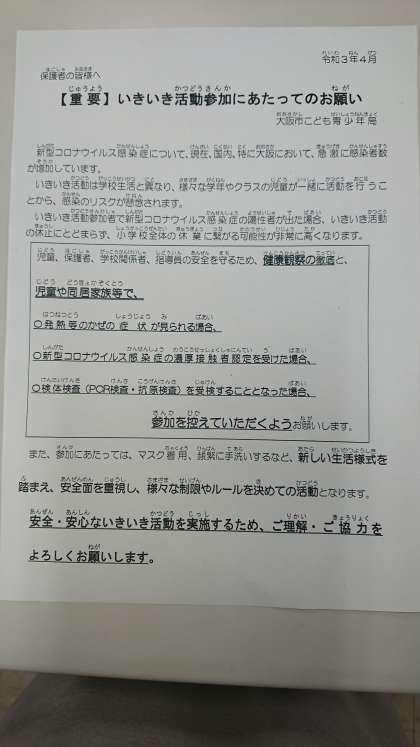 令和3年4月
保護者の皆様へ
【重要】いきいき活動参加にあたってのお願い
大阪市こども青少年局
新型コロナウイルス感染症について、現在、国内、特に大阪において、急激に感染者数
が増加しています。
いきいき活動は学校生活と異なり、様々な学年やクラスの児童が一緒に活動を行うこ
とから、感染のリスクが懸念されます。
いきいき活動参加者で新型コロナウイルス感染症の陽性者が出た場合、いきいき活動
の休止にとどまらず、小学校全体の休業に繋がる可能性が非常に高くなります。
児童、保護者、学校関係者、指導員の安全を守るため、健康観察の徹底と、
児童や同居家族等で、
〇発熱等のかぜの症状が見られる場合、
〇新型コロナウイルス感染症の濃厚接触者認定を受けた場合、
〇検体検査(PCR検査・抗原検査)を受検することとなった場合、
参加を控えていただくようお願いします。
また、参加にあたっては、マスク着用、頻繁に手洗いするなど、新しい生活様式を
踏まえ、安全面を重視し、様々な制限やルールを決めての活動となります。
安全・安心ないきいき活動を実施するため、ご理解・ご協力を
よろしくお願いします。